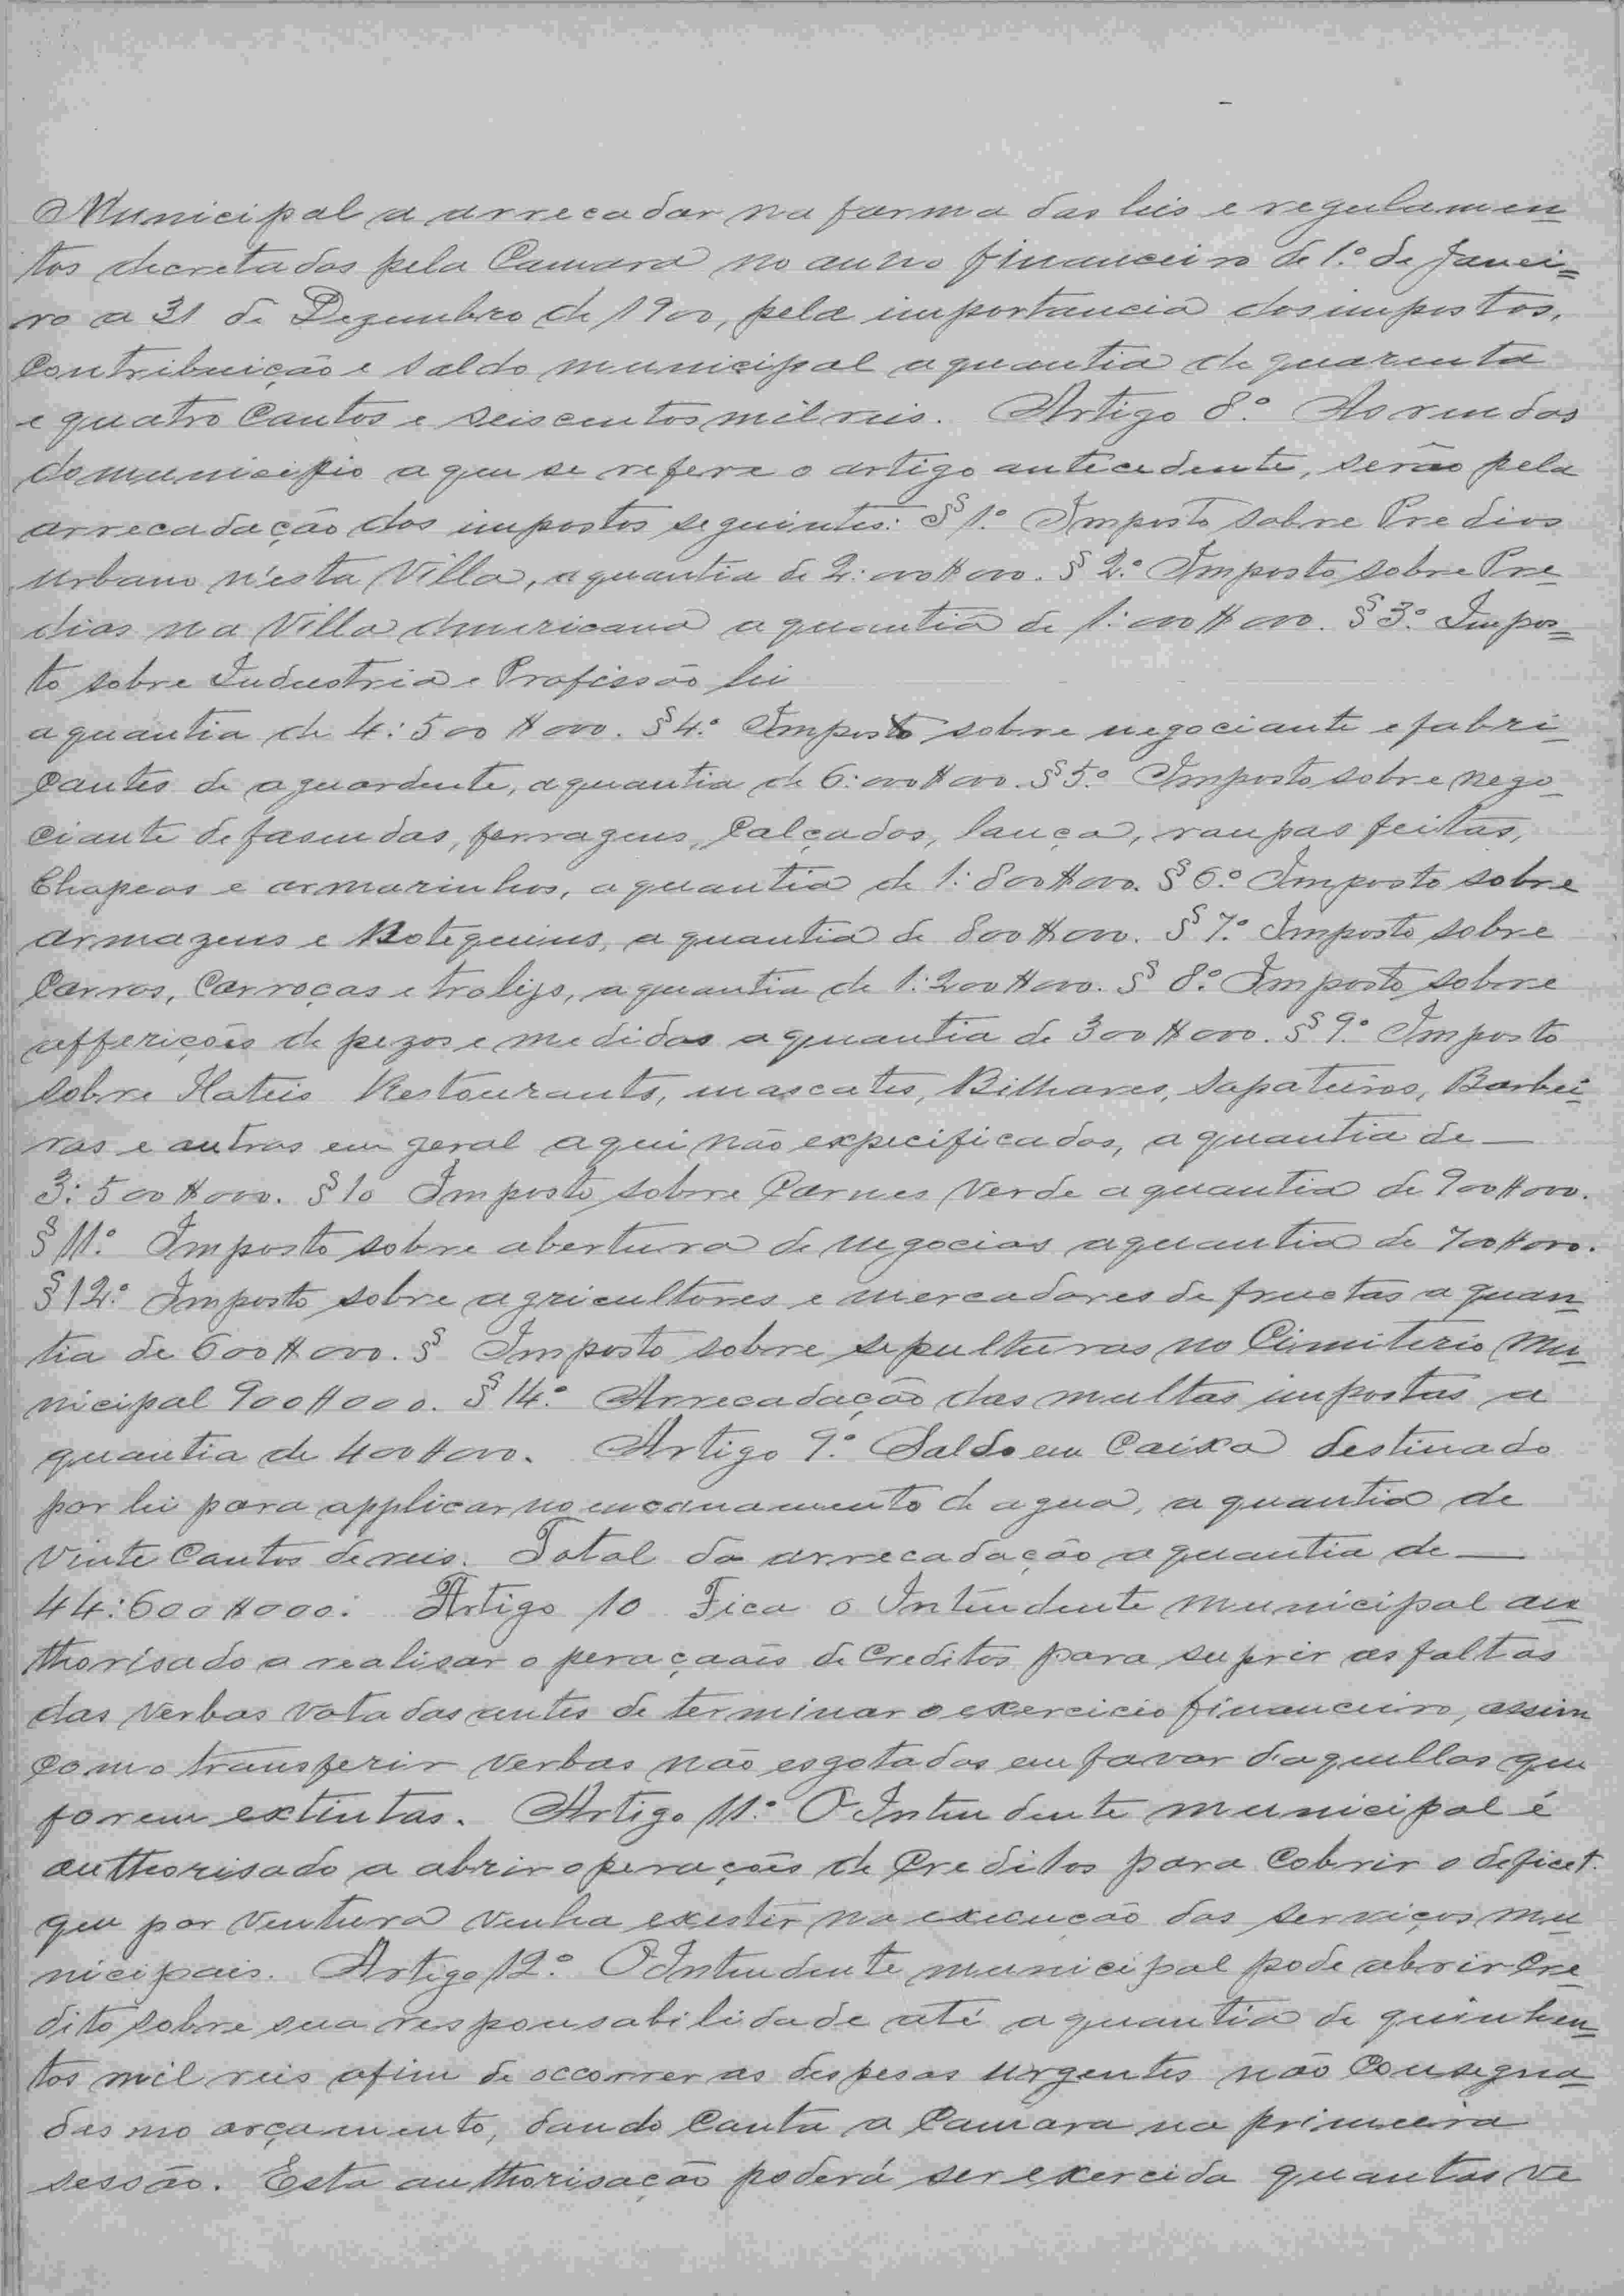 Municipal a arrecadar na forma das leis e regulamen
tos decretados pela Camara no anno financeiro de 1.º de Janei=
ro a 31 de Dezembro de 1900, pela importancia dos impostos,
Contribuição e Saldo municipal a quantia de quarenta
e quatro Contos e seiscentos mil reis. Artigo 8.º As rendas
do municipio a que se refere o artigo antecedente, serão pela
arrecadação dos impostos seguintes: § 1.º Imposto sobre Predios
urbano n'esta Villa, a quantia de 2:000$000. § 2.º Imposto sobre Pre
dios na Villa Americana a quantia de 1:000$000. § 3.º Impos=
to sobre Industria e Profissão lei
a quantia de 4:500$000. § 4.º Imposto sobre negociante e fabri
cantes de aguardente, a quantia de 6:000$000. § 5.º Imposto sobre nego
ciante de fasendas, ferragens, Calçados, louça, roupas feitas,
Chapeos e armarinhos, a quantia de 1:800$000. § 6.º Imposto sobre
armazens e Botequins, a quantia de 800$000. § 7.º Imposto sobre
Carros, Carroças e trolys, a quantia de 1:200$000. § 8.º Imposto sobre
afferições de pezos e medidas a quantia de 300$000. § 9.º Imposto
sobre Hoteis Restourants, mascates, Bilhares, Sapateiros, Barbei
ros e outros em geral aqui não expecificados, a quantia de —
3:500$000. § 10 Imposto sobre Carnes Verde a quantia de 900$000.
§ 11.º Imposto sobre abertura de negocios a quantia de 700$000.
§ 12.º Imposto sobre agricultores e mercadores de fructas a quan
tia de 600$000. § Imposto sobre sepulturas no Cimiterio Mu
nicipal 900$000. § 14.º Arrecadação das multas impostas a
quantia de 400$000. Artigo 9.º Saldo em Caixa destinado
por lei para applicar no encanamento de agua, a quantia de
Vinte Contos de reis. Total da arrecadação a quantia de —
44:600$000: Artigo 10 Fica o Intendente municipal au
thorisado a realisar operaçaões de Creditos para suprir as faltas
das Verbas Votadas antes de terminar o exercicio financeiro, assim
como transferir Verbas não esgotadas em favor d'aquellas que
forem extintas. Artigo 11.º O Intendente municipal é
authorisado a abrir operações de Creditos para Cobrir o deficet.
que por Ventura Venha exester na execução dos serviços mu
nicipais. Artigo 12.º O Intendente municipal pode abrir Cre
dito sobre sua responsabilidade até a quantia de quinhen
tos mil reis afim de occorrer as despesas urgentes não Consegna
das no orçamento, dando Conta a Camara na primeira
sessão. Esta authorisação poderá ser exercida quantas Ve